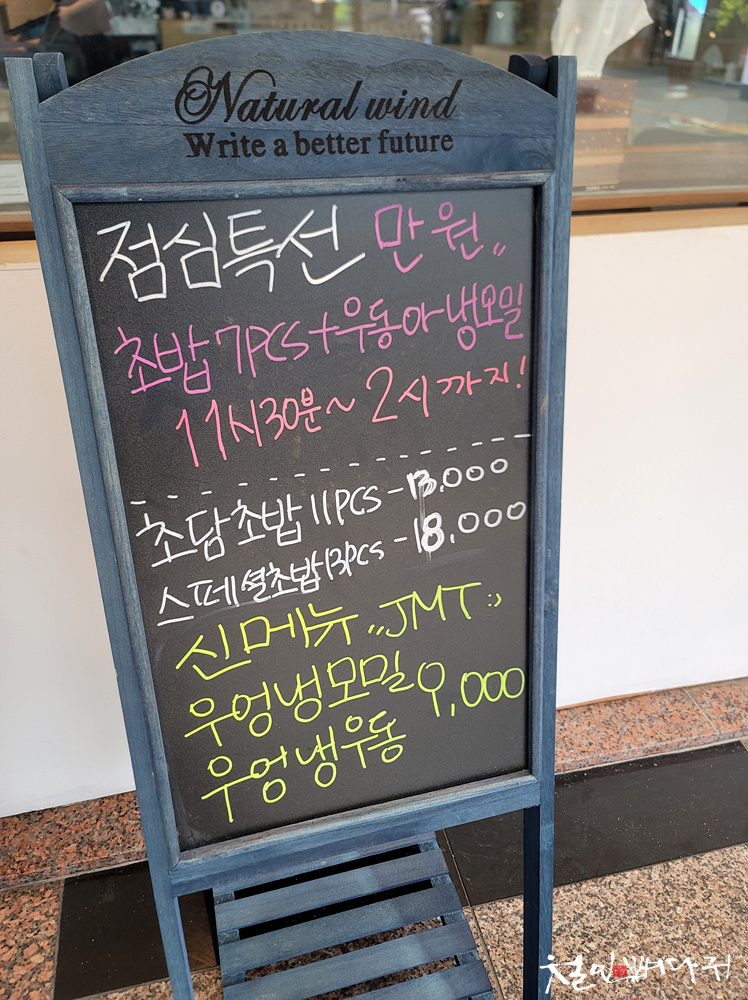 Natural wind
Write a better future
점심특선 만원"
초밥 7PCS+우동 or 냉모밀
11시30분~ 2시까지!
초담초밥 11PCS - 13,000
스페셜초밥 13pcs - 18,000
신메뉴 "JMT :)
우엉냉모밀 9,000
우엉냉우동